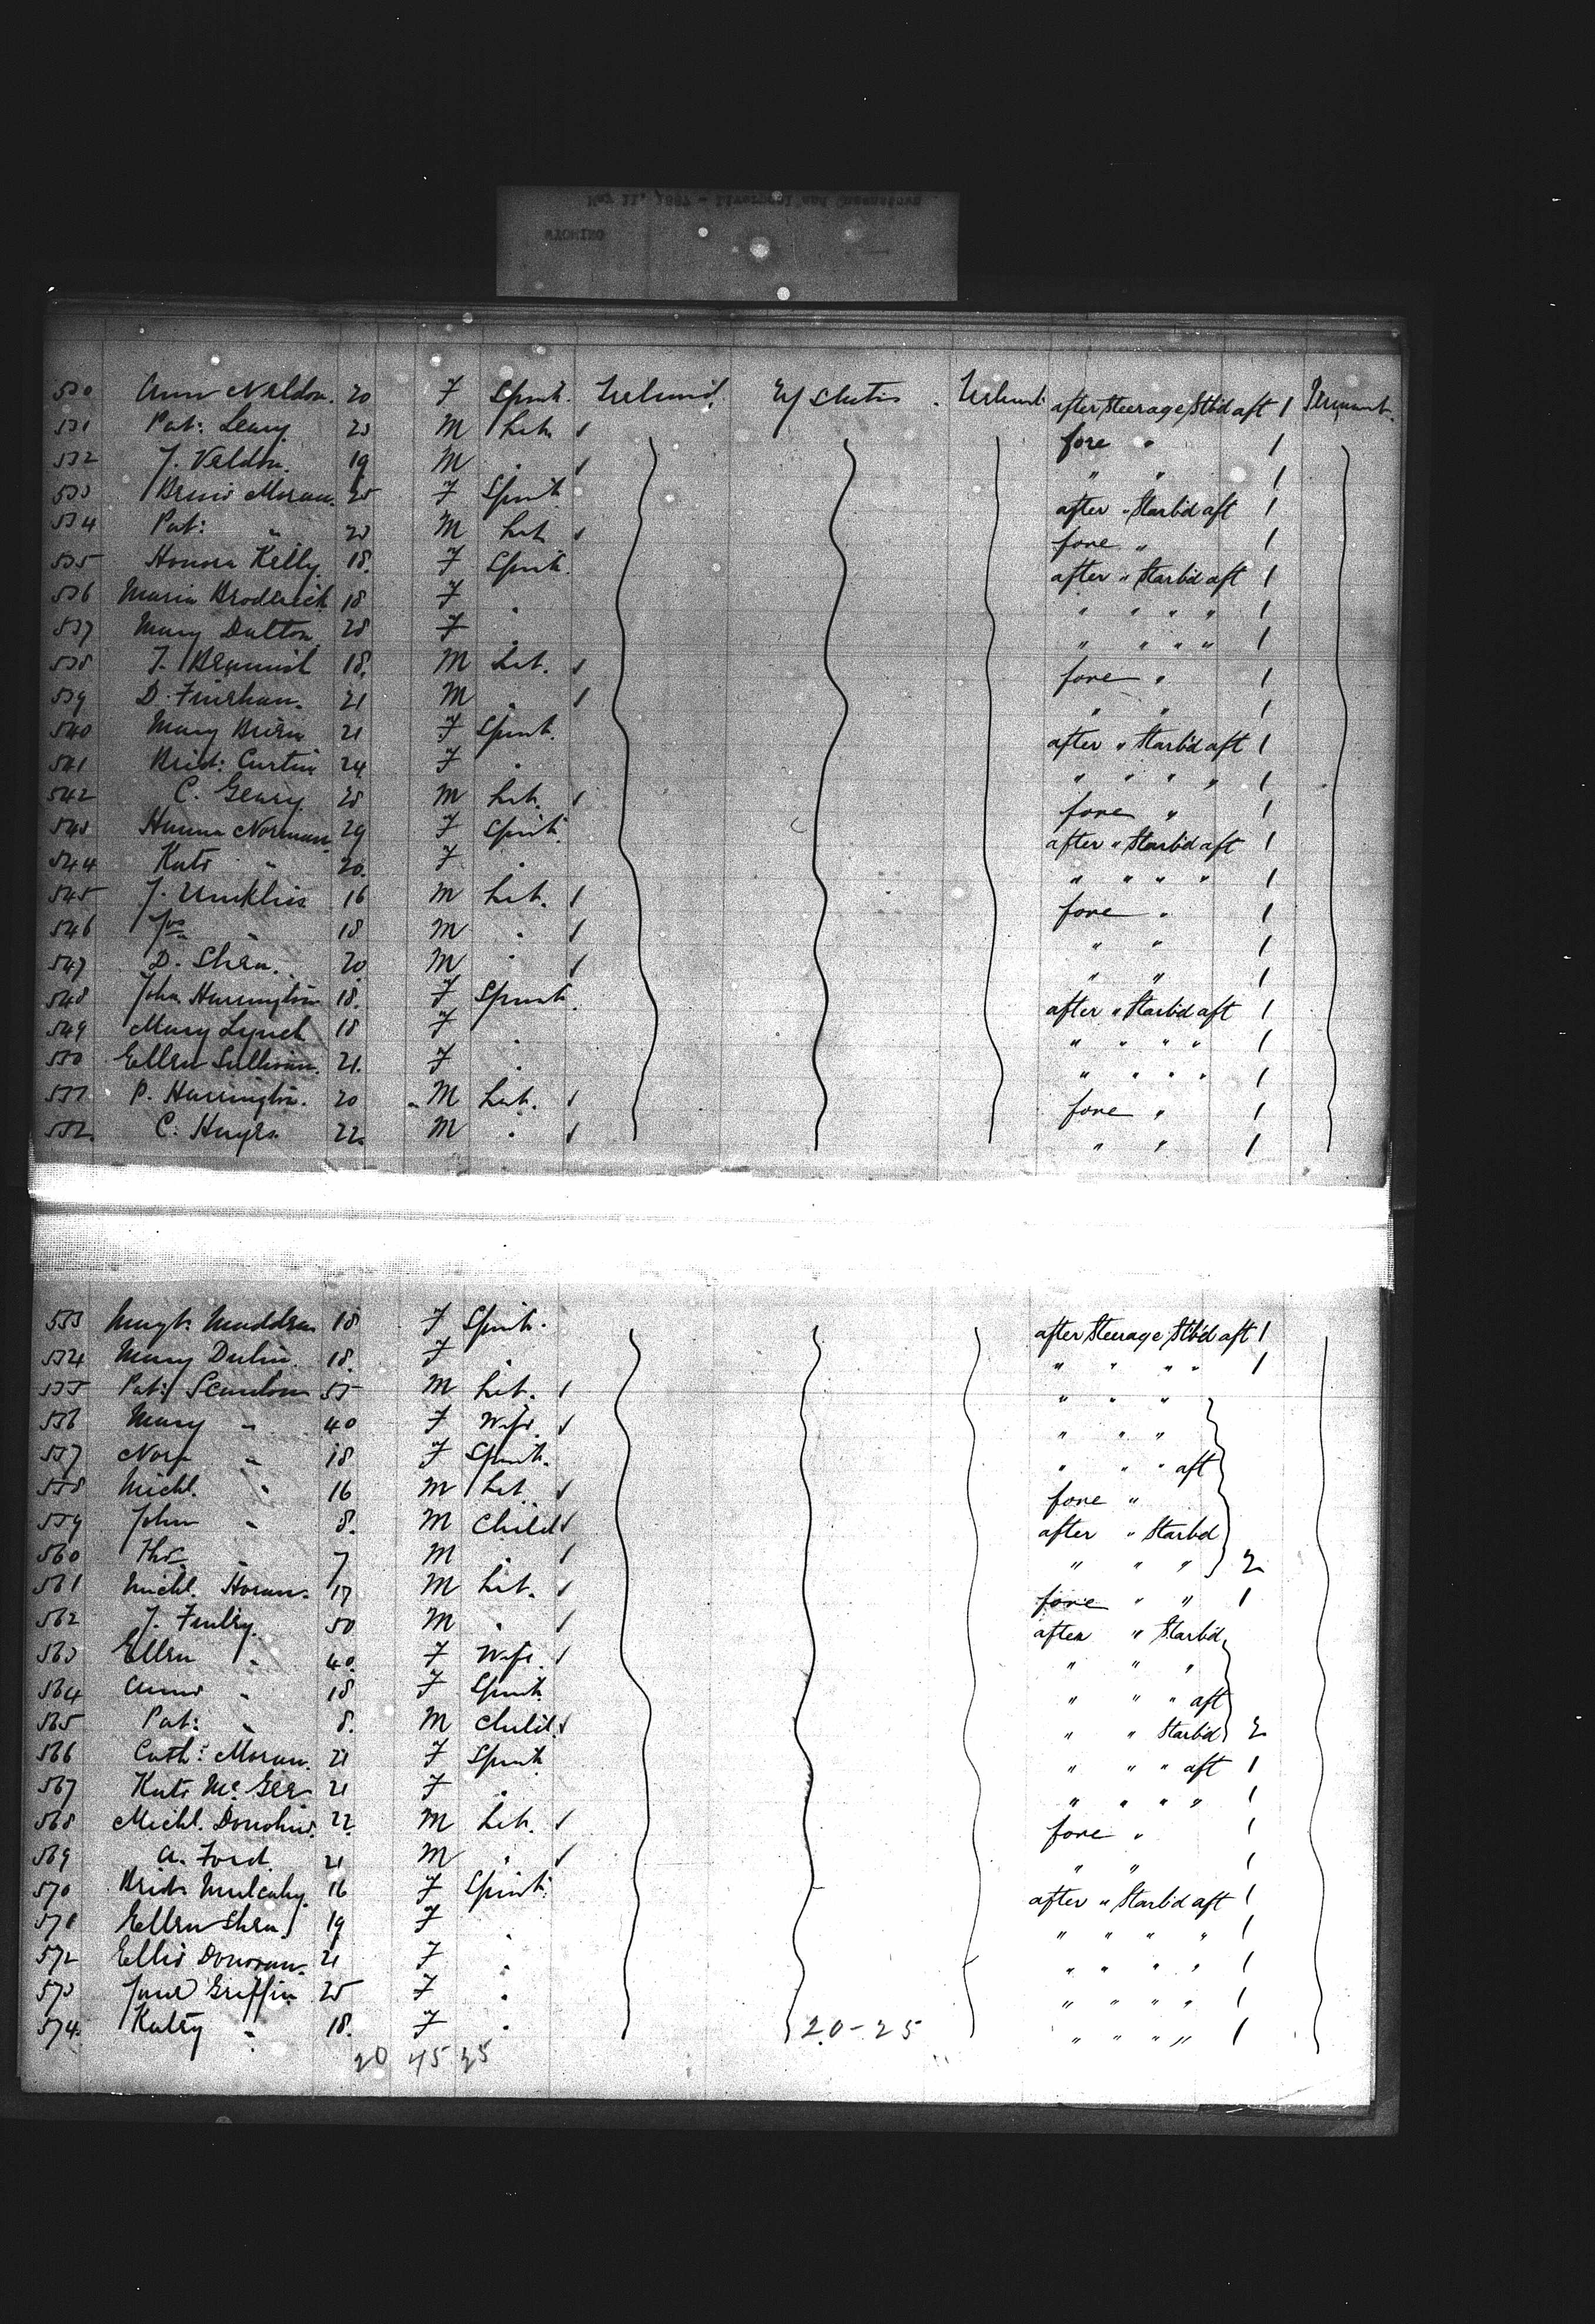 May 11, 1887 - Liverpool and Queenstown
WYOMING
530 Ann Naldon. 20 F Spinst. Ireland. U/States. Ireland after steerage Stbd aft 1 Permant.
531 Pat: Leary 23 M Lab. fore " 1
532 J. Valdon. 19 M " " " 1
533 Moran. 25 F Spinst after " Starbd aft 1
534 Pat: " 23 M Lab fore " 1
535 Honora Kelly 18. F Spinst. after " Starbd aft 1
536 Maria Broderick 18 F " " " " " 1
537 Mary Dalton 28 F " " " " " 1
538 J. 18. M Lab. fore " 1
539 D. 21 M " " " 1
540 Mary Brien 21 F Spinst. after " Starbd aft 1
541 Brid: Curtin 24 F " " " " " 1
542 C. Geary 28 M Lab. fore " 1
543 Hanna Norman 29 F Spinst. after " Starbd aft 1
544 Kate " 20. F " " " " " 1
545 J. 16 M Lab. fore " 1
546 " 18 M " " " 1
547 D. Shea. 20 M " " " 1
548 Joha Harrington 18. F Spinst. after " Starbd aft 1
549 Mary Lynch 18 F " " " " " 1
550 Ellen Sullivan. 21. F " " " " " 1
551 P. Harrington. 20 M Lab. fore " 1
552. C. Hayes. 22. M " " " 1
553 Margt. Madden 18 F Spinst. after Steerage Stbd aft 1
554 Mary 18. F " " " " " 1
555 Pat: Scanlon 55 M Lab. " " "
556 Mary " 40 F Wife. " " "
557 Nora " 18 F Spinst. " " " aft
558 Michl. " 16 M Lab. fore "
559 John " 8. M Child after " Starbd
560 Thos " 7 M " " " " 2
561 Michl. Horan. 17 M Lab. fore " " 1
562 J. 50 M " after " Starbd
563 Ellen " 40. F Wife. " " "
564 Annie " 18 F Spinst " " " aft
565 Pat: " 8. M Child " " Starbd 2
566 Cath: Moran. 21 F Spinst " " " aft 1
567 Kate McGee 21 F " " " " " 1
568 Michl. Donohue. 22. M Lab. fore " 1
569 A. Ford. 21 M " " " 1
570 Brid: Mulcahy. 16 F Spinst. after " Starbd aft 1
571 Ellen Shea 19 F " " " " " 1
572 Ellis Donovan. 21 F " " " " " 1
573 Jane Griffin 25 F " " " " " 1
574. Katey " 18. F " 20-25 " " " " 1
20 45 25